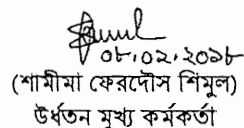 ০৮.০২.২০১৮
(শামীমা ফেরদৌস শিমুল)
উর্ধতন মুখ্য কর্মকর্তা